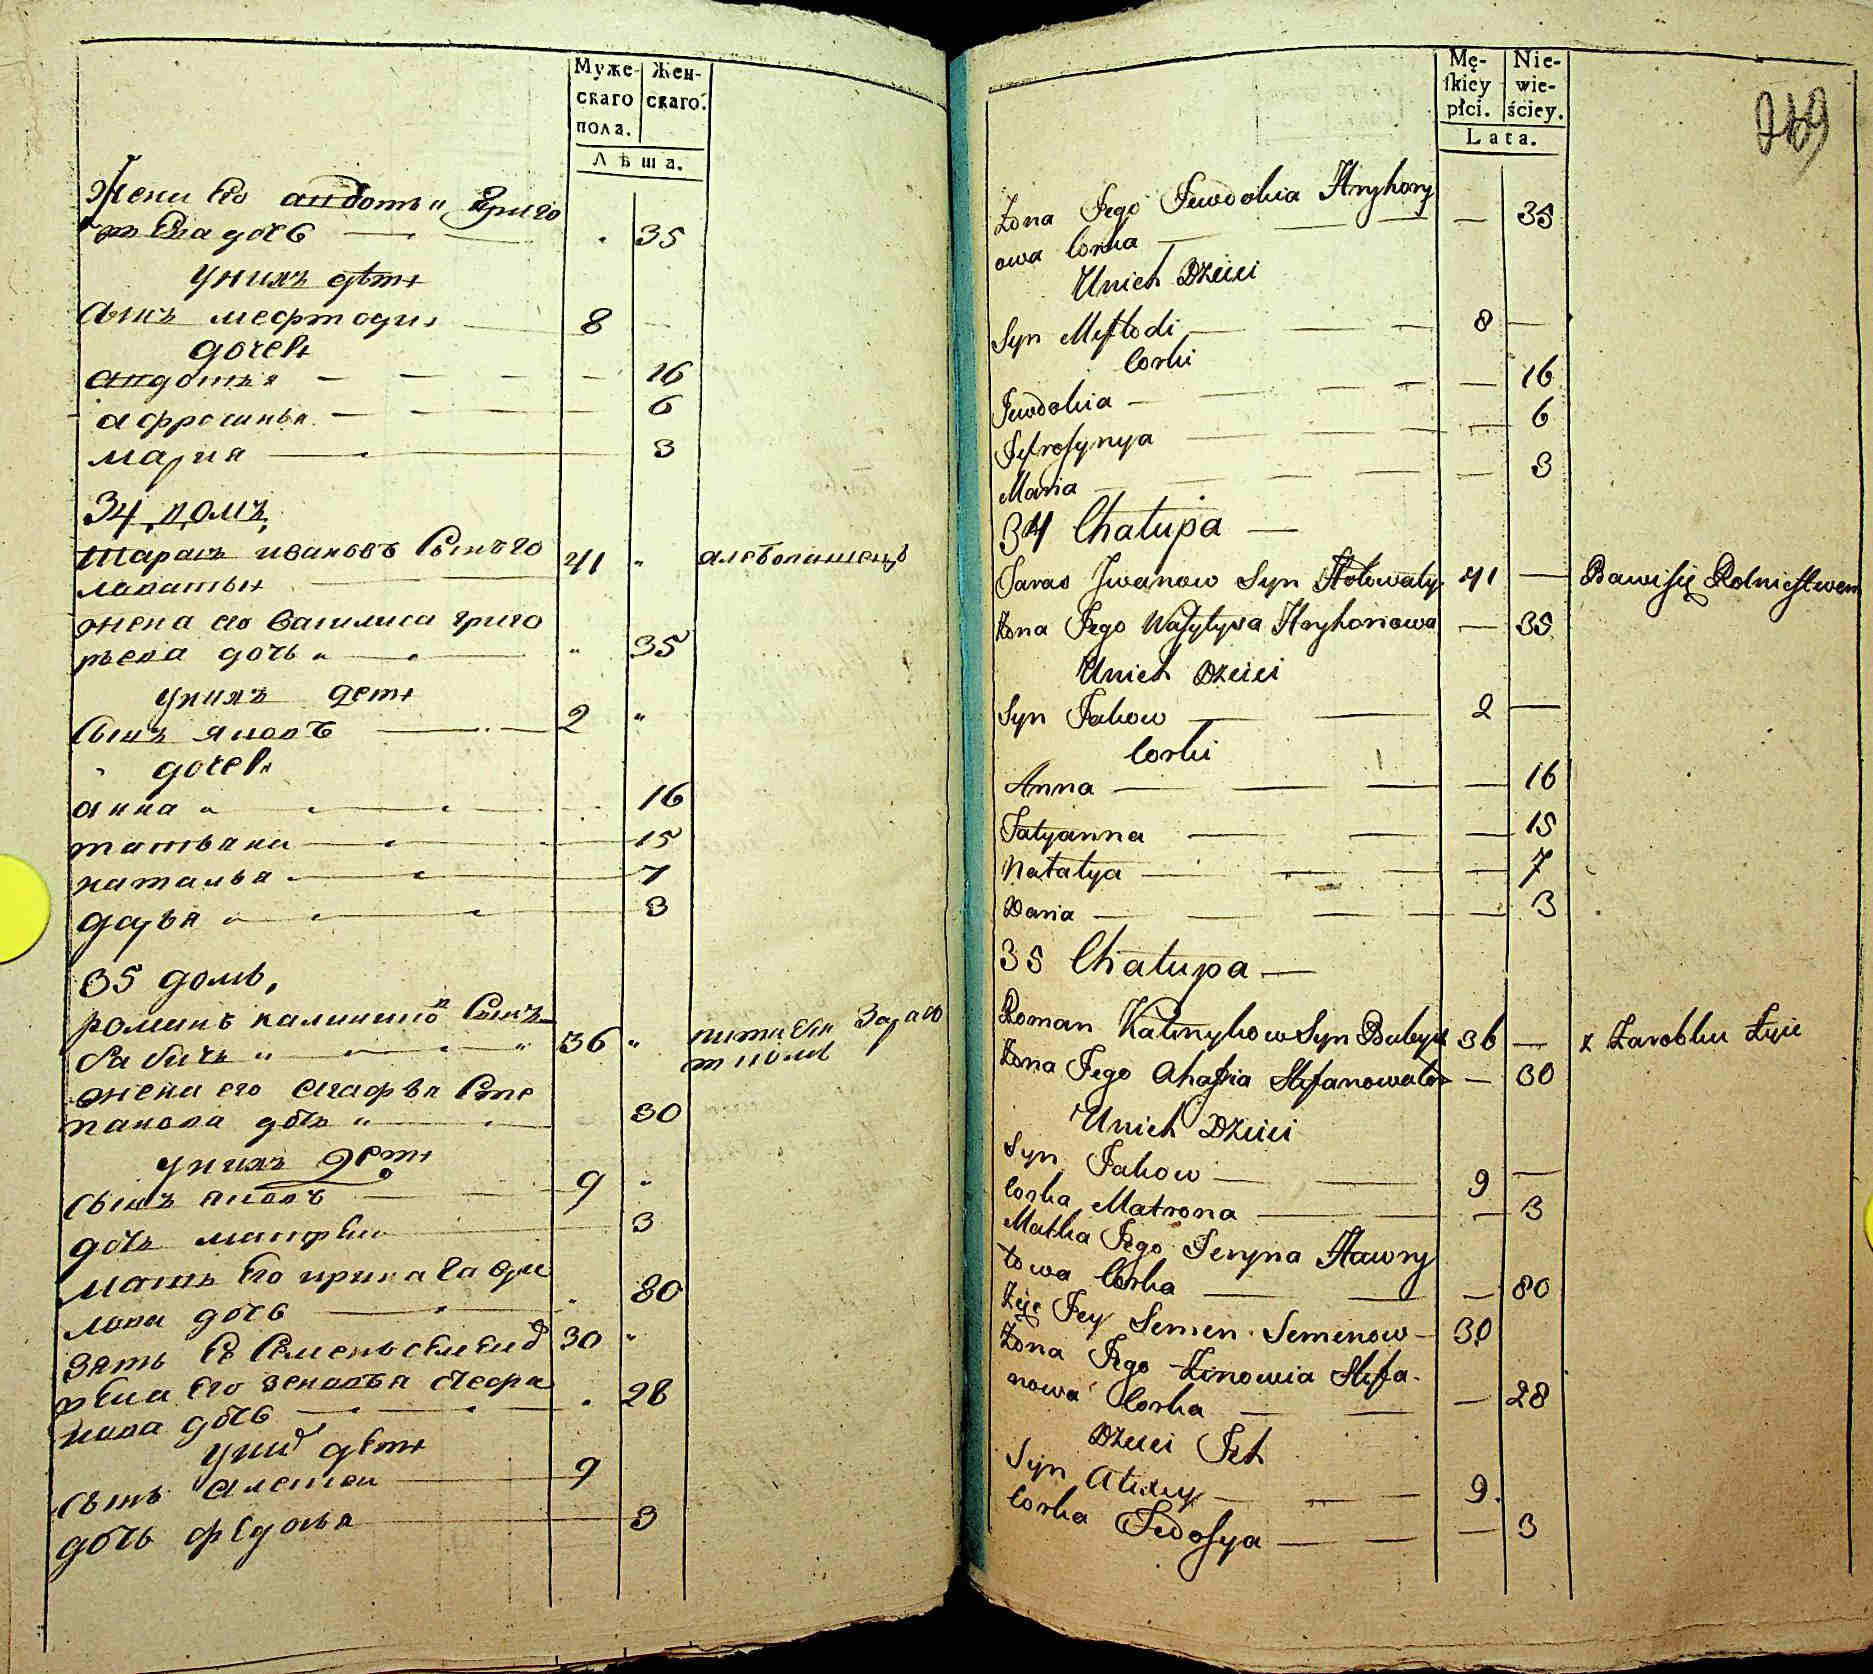 Муже-
скаго
пола.
Жен-
скаго.
Лѣта.
Жена Его андотья Григо
рьева дочь — — . 35
у нихъ дѣти
Сынъ мефтодий — 8 —
дочери
андотья — — — — 16
афросинья — — — — 6
мария — — 3
34 домъ
Тарасъ ивановъ Сынъ го
ловатый — 41 " хлебопашецъ
жена его василиса григо
рьева дочь " — " 35
у нихъ дети
Сынъ яковъ — 2 "
дочери
анна — 16
татьяна — 15
наталья — 7
дарья — 3
35 домъ,
романъ калиниковъ Сынъ
бабичъ " — " 36 " питаетца Зарабо
тком
жена его агафья Сте
панова дочь " — 30
у нихъ дети
сынъ яковъ — 9 "
дочь матрена — 3
мать Его ирина гаври
лова дочь — . 80
зять Ее Семенъ семенов 30 "
жена Его зеновья стефа
нова дочь — . 28
у них дети
сынъ алексеи — 9
дочь федосья — 3
Mę-
skiey
płci.
Nie-
wie-
ściey.
Lata.
269
Żona Jego Jewdokia Hryhory
owa Corka — — — 35
Unich Dzieci
Syn Meftodi — — — 8 —
Corki
Jewdokia — — — — 16
Jefrosynya — — — 6
Maria — — — — 3
34 Chałupa —
Taras Jwanow Syn Hołowaty 41 — Bawi się Rolnictwem
Żona Jego Wasylysa Hryhoriowa — 35
Unich Dzieci
Syn Jakow — — 2 —
Corki
Anna — — — — 16
Tatyanna — — — 15
Natalya — — — — 7
Daria — — — — 3
35 Chałupa —
Roman Kalinykow Syn Babycz 36 — z Zarobku Żyie
Żona Jego Ahafia Stefanowa Cor — 30
Unich Dzieci
Syn Jakow — — 9 —
Corka Matrona — — — 3
Matka Jego Jeryna Hawry
łowa Corka — — — 80
Zięć Jey Semen Semenow — 30
Żona Jego Zinowia Stefa-
nowa Corka — — — 28
Dzieci Jch
Syn Alexey — — — 9.
Corka Fedosya — — — 3